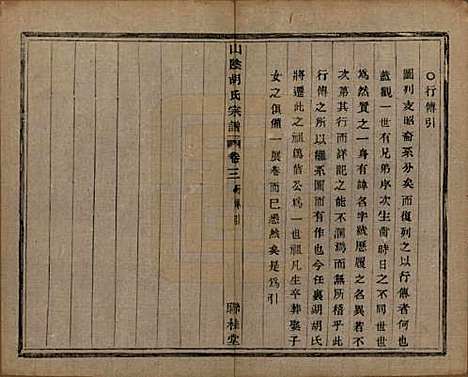 ○行傳引
圖列支昭裔系分矣而復列之以行傳者何也
蓋觀一世有兄弟序次生齒時日之不同世世
為然質之一身有諱名字號歷履之名異若不
第次第而詳記之能不淵為而無所稽乎此
行傳之所以繼系圖而有也今任裏湖胡氏
將遷此之祖為信公為一世祖凡生卒葬娶子
女之俱備一展卷而已悉然矣是為引
山陰胡氏宗譜
卷三
行傳引
聯桂堂